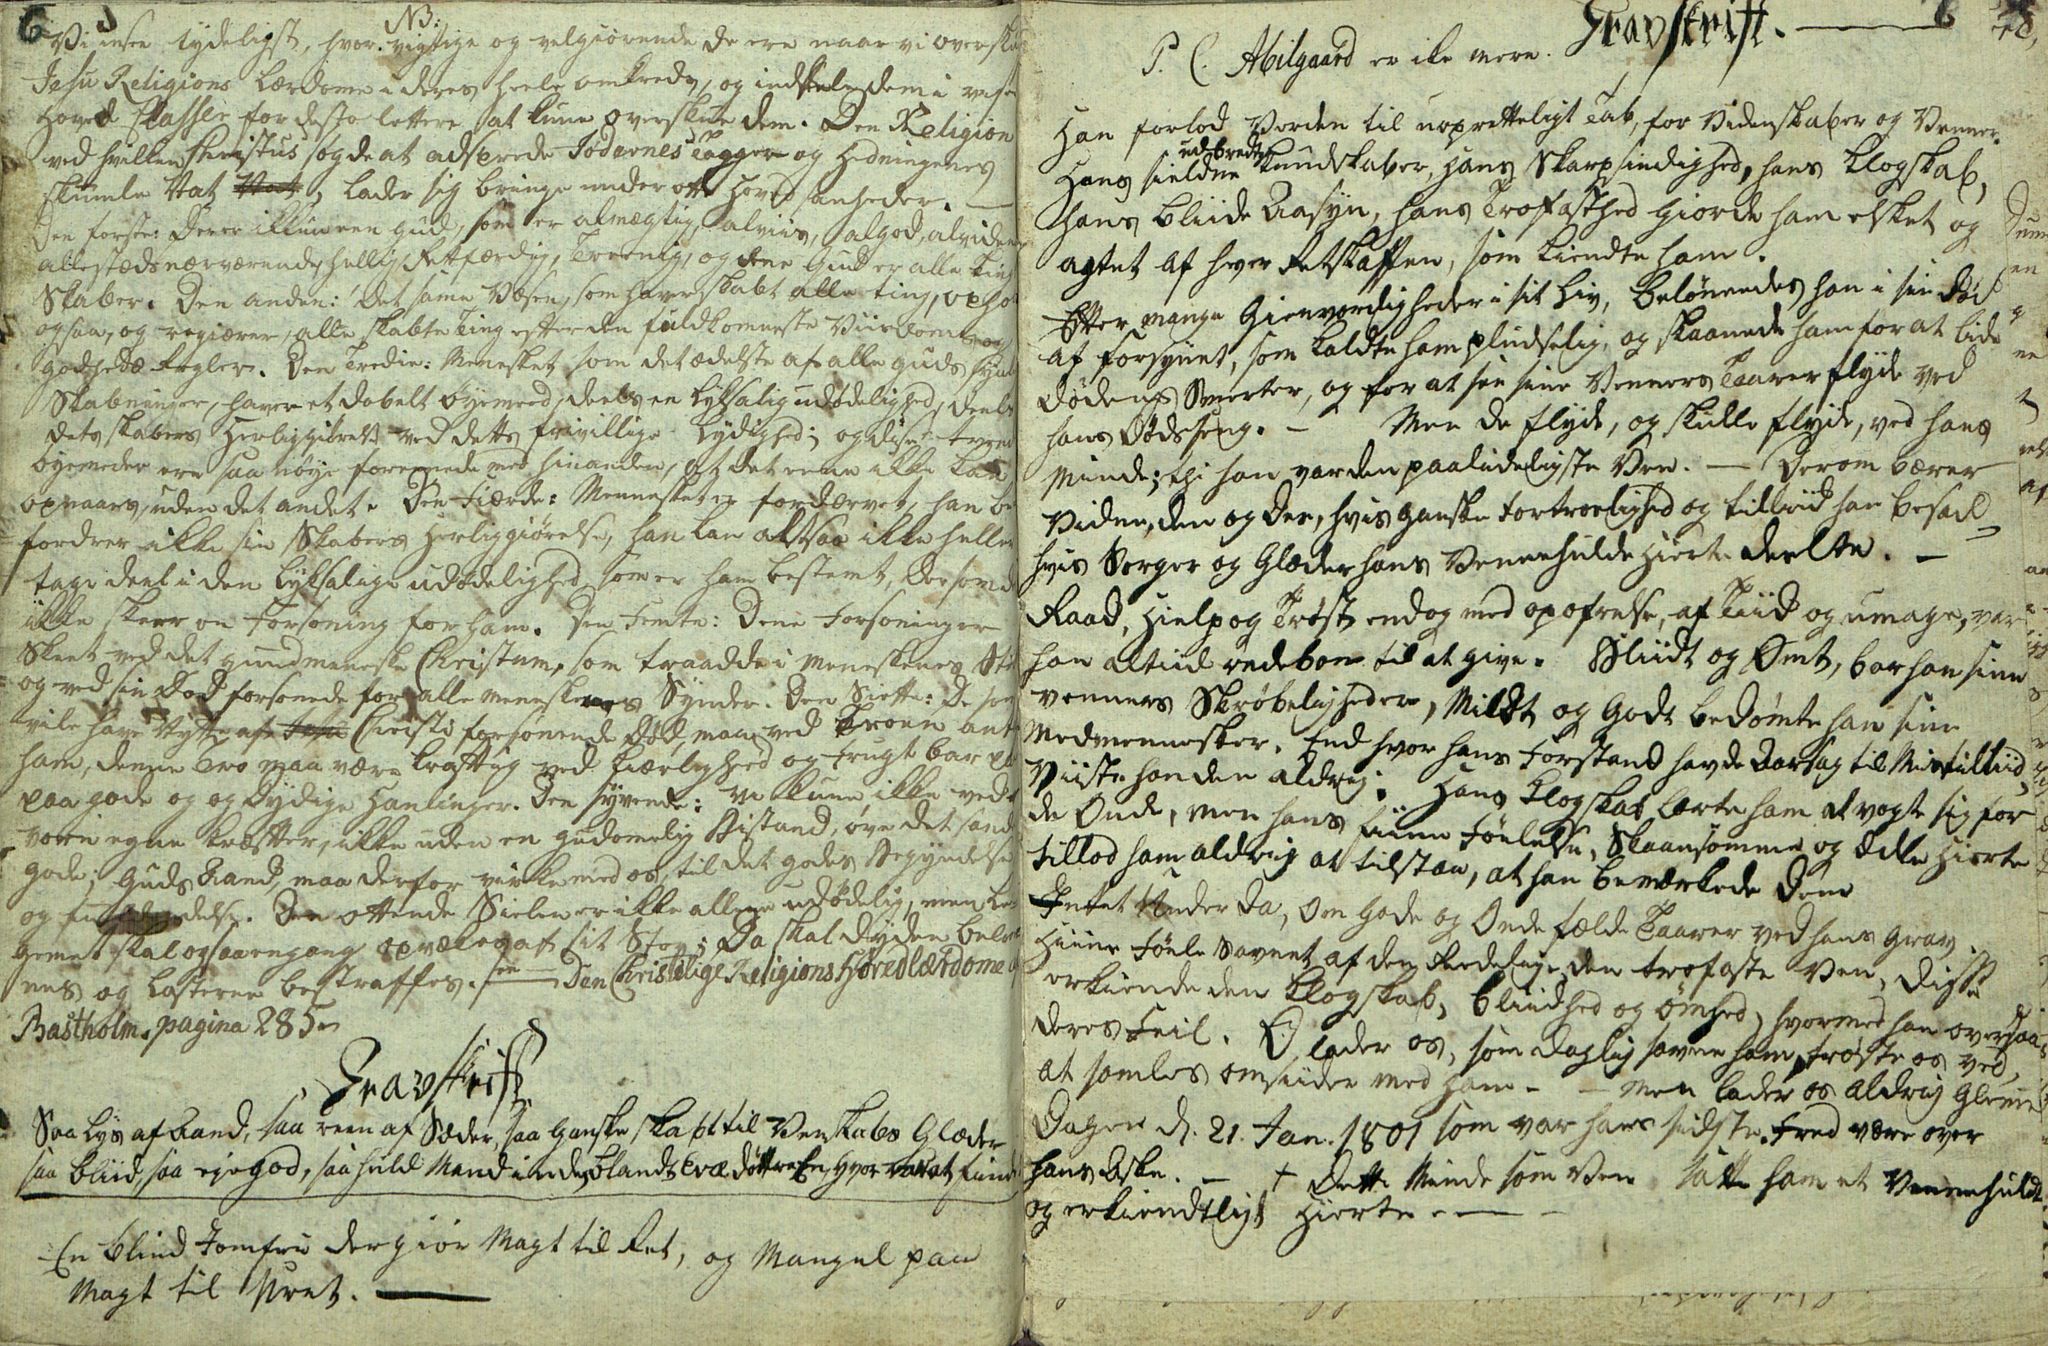 6
NB:
Vi insee tydeligst, hvor vigtige og velgiørende de ere naar vi overskue
Jesu Religions Lærdome i deres heele omkreds, og inddeele dem i visse
Hoved Classer for desto lettere at kune overskue dem. Den Religion
ved hvilken Christus søgde at adsprede Jødernes Taager og Hedningenes
skumle Nat, lader sig bringe under otte Hoved sanheder. —
Den første: Der er ikkun een Gud, som er almægtig, alviis, algod, alvidende
allestædsnærværende, hellig, Retfærdig, Treenig, og dene Gud er alle Ting
Skaber. Den anden: Det same Væsen, som haver skabt alle ting, opho
ogsaa, og regiærer, alle skabte Ting efter den fuldkomneste Viisdom og
godheds Regler. Den Tredie: Menesket som det ædelste af alle Guds syn
Skabninger, haver et dobelt Øyemeed, deels en lyksalig udødelighed, deels
dets skabers Herliggiørelse ved dets frivillige Lydighed; og disse tvende
øyemeder ere saa nøye foreenede med hinanden, at det eene ikke kan
opnaaes, uden det andet. Den Fierde: Mennesket er fordærvet, han be
fordrer ikke sin Skabers Herliggiørelse, han kan altsaa ikke heller
tage deel i den lyksalige udødelighed, som er ham bestemt, dersom d
ikke skeer en Forsoning for ham. Den Femte: Dene Forsoning er
Skeet ved det gudmeneske Christum, som traadde i Meneskenes Ste
og ved sin Død forsonede for alle meneskenes Synder. Den Siette: De som
vile have Nytte af Christi forsonende Død, maa ved Troen ant
ham, denne Tro maa være kraftig ved Kiærlighed og Frugtbar
paa gode og og Dydige Handlinger. Den syvende: Vi kune ikke ved
vore egne kræfter, ikke uden en gudomelig Bistand, øve det sande
gode; Guds Aand, maa derfor virke med os, til det godes Begyndelse
og fuldendelse. Den ottende Sielen er ikke allene udødelig, men Le-
gemet skal ogsaa engang opvækkes af sit Støv; Da skal Dyden belø
nes og Lasterne bestraffes. see — Den Christelige Religions Hovedlærdome
Bastholm. pagina 285.
Gravskrift
Saa lys af Aand, saa reen af Sæder, saa ganske skabt til Venskabs Glæder
saa bliid, saa eyegod, saa huld Mand iblandt døttre En, hvor findes
En blind Jomfru der giør Magt til Ret, og Mangel paa
Magt til Uret. —
Gravskrift. —
P. C. Abilgaard er ike mere.
Han forlod Verden til uopretteligt Tab, for Videnskaber og Venner.
udbredte
Hans sieldne kundskaber, hans Skarpsindighed, hans Klogskab,
hans bliide Aasyn, hans Trofasthed giorde ham elsket og
agtet af hver Retskaffen, som kiendte ham.
Efter mange Gienvordigheder i sit Liv, belønnedes han i sin Død
af Forsynet, som kaldte ham pludselig, og skaanede ham for at lide
Dødens Smerter, og for at see sine Venners Taarer flyde ved
hans Dødsseng. — Men de flyde, og skulle flyde, ved hans
Minde; thi han var den paalideligste Ven. — Derom bærer
Vidne, den og den, hvis ganske Fortroelighed og tilliid han besad
hvis Sorger og Glæder hans Vennehulde Hierte deelte. —
Raad, Hielp og Trøst endog med opofrelse, af Tiid og umage, var
han altiid redebon til at give. Bliidt og Ømt, bar han sine
venners Skrøbeligheder, Mildt og Godt bedømte han sine
Medmennesker. End hvor hans Forstand havde Aarsag til Mistilliid,
Viiste han den aldrig. Hans Klogskab lærte ham at vogte sig for
de Onde, men hans fiine Føelelse, Skaansomme og Ædle Hierte
tillod ham aldrig at tilstaae, at han bemærkede dem
Intet Under da, om Gode og Onde fælde Taarer ved hans Grav.
Hiine Føele Savnet af den Redelige, den trofaste Ven, Disse
erkiende den Klogskab, bliidhed og ømhed, hvormed han oversaae
deres Feil. O, lader os, som daglig savne ham, trøste os ved,
at samles omsiider med ham — Men lader os aldrig Glemme
Dagen d. 21. Jan. 1801 som var hans sidste. Fred være over
hans Aske. — † Dette Minde som Ven satte ham et Vennehuldt
og erkiendtligt Hierte —